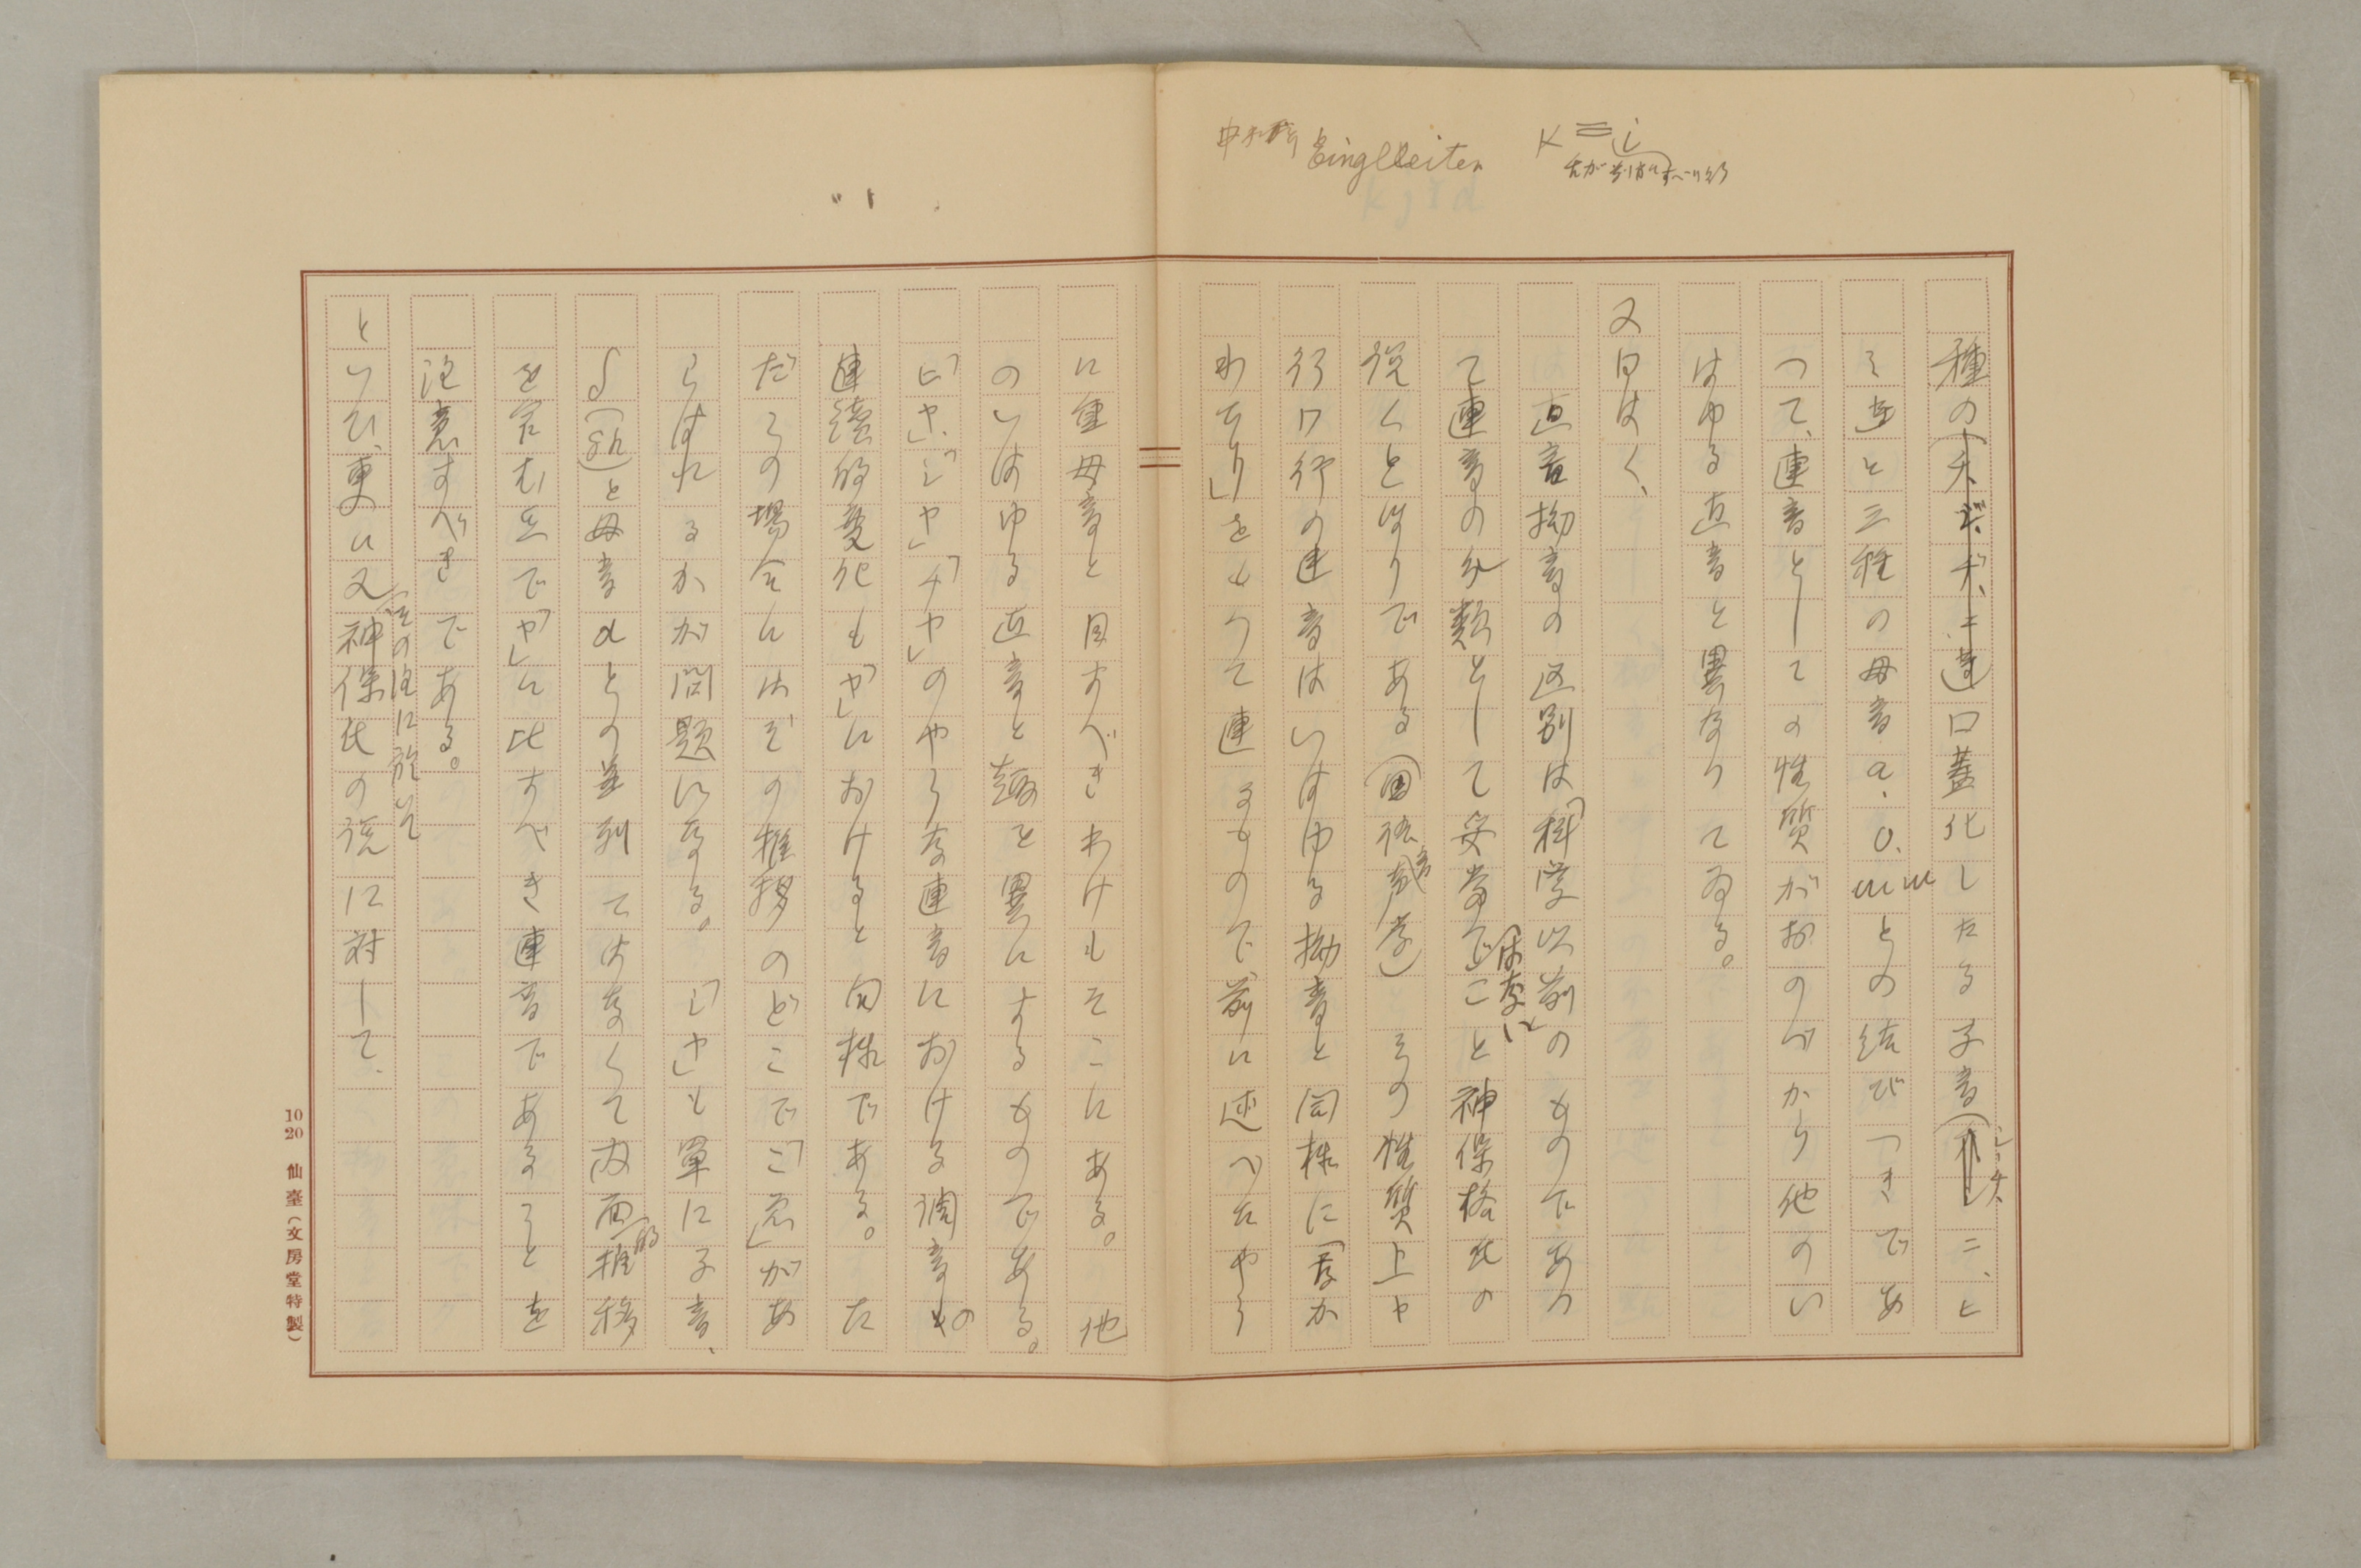 Eingleiten K = i
種の口蓋化したる子音シ、チ、ニ、ヒ
ミ、と三種の母音a、o、ɯとの結びつきであ
つて、連音としての性質がおのづから他のい
はゆる直音と異なつてゐる。
又曰はく、
直音拗音の区別は「科学以前のものであつ
て連音の分類としては妥当でないこと神保格氏の
説くとほりである(国語音声学)その性質上ヤ
行ワ行の連音はいはゆる拗音と同様に「なか
わたり」をもつて連るもので前に述べたやう
に重母音と目すべきわけもそこにある。他
のいはゆる直音と趣を異にするものである。
「ヒヤ」「ミヤ」「チヤ」のやうな連音における調音の
連続的変化も「ヤ」におけると同様である。た
だこの場合にはその推移のどこで「こ忽」があ
らはれるかが問題になる。「シヤ」も単に子音、
ʃ(sh)と母音ɑとの並列ではなくて内面的推移
を含む点で「ヤ」に比すべき連音であることを
注意すべきである。
といひ、更に又(その注に於て)神保氏の説に対して、
10 20 仙臺(文房堂特製)